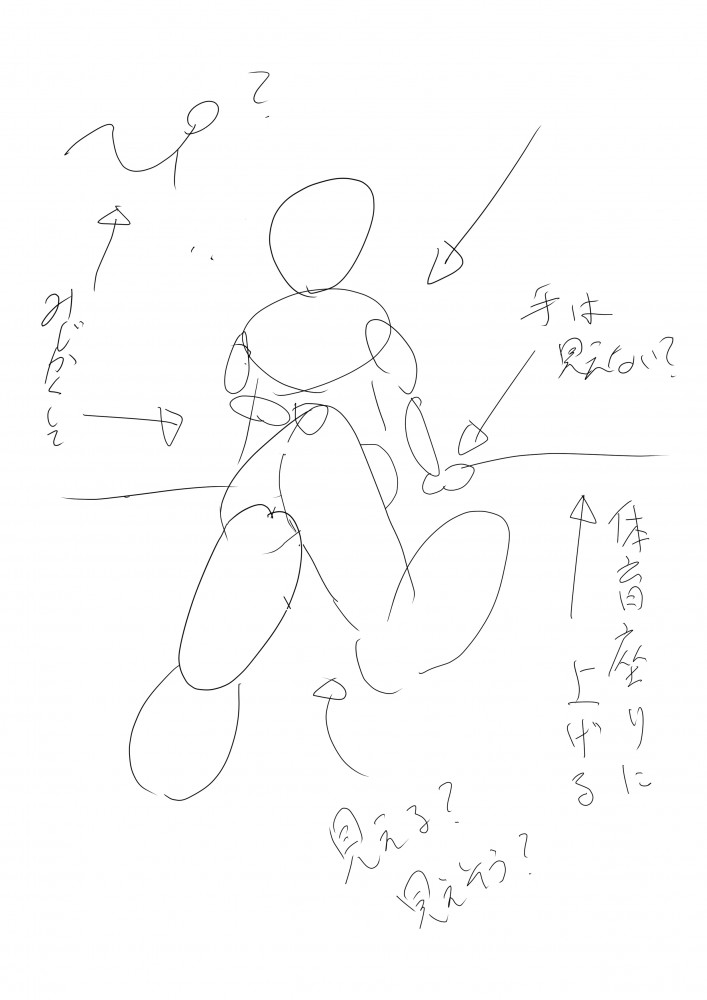 ?
手は
見えない?
みじかくして
体育座りに
上げる
見える?
見えそう?